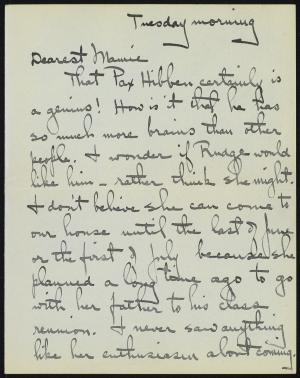 Tuesday morning
Dearest Mamie
That Pax Hibben certainly is
a genius! How is it that he has
so much more brains than other
people. I wonder if Rudge would
like him – rather think she might.
I don't believe she can come to
our house until the last of June
or the first of July because she
planned a long time ago to go
with her father to his class
reunion. I never saw anything
like her enthusiasm about coming.